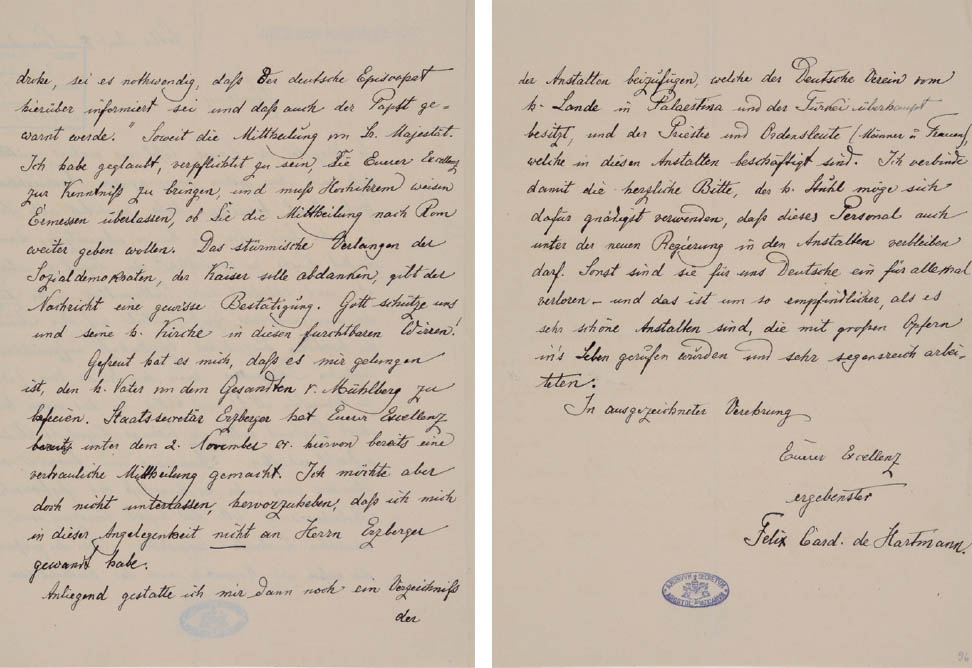 drohe, sei es nothwendig, daß der deutsche Episcopat
hierüber informiert sei und daß auch der Papst ge=
warnt werde." Soweit die Mittheilung von Sr. Majestät.
Ich habe geglaubt, verpflichtet zu sein, Sie Euerer Excellenz
zur Kenntniß zu bringen, und muß Hochihrem weisen
Ermessen überlassen, ob Sie die Mittheilung nach Rom
weiter geben wollen. Das stürmische Verlangen der
Sozialdemokraten, der Kaiser solle abdanken, gibt der
Nachricht eine gewisse Bestätigung. Gott schütze uns
und seine h. Kirche in diesen furchtbaren Wirren!
Gefreut hat es mich, daß es mir gelungen
ist, den h. Vater von dem Gesandten v. Mühlberg zu
befreien. Staatssecretär Erzberger hat Euerer Excellenz
unter dem 2. November cr. hiervon bereits eine
vertrauliche Mittheilung gemacht. Ich möchte aber
doch nicht unterlassen, hervorzuheben, daß ich mich
in dieser Angelegenheit nicht an Herrn Erzberger
gewandt habe.
Anliegend gestatte ich mir dann noch ein Verzeichniß
der
der Anstalten beizufügen, welche der Deutsche Verein vom
h. Lande in Palaestina und der Türkei überhaupt
besitzt, und der Priester und Ordensleute (Männer u. Frauen),
welche in diesen Anstalten beschäftigt sind. Ich verbinde
damit die herzliche Bitte, der h. Stuhl möge sich
dafür gnädigst verwenden, daß dieses Personal auch
unter der neuen Regierung in den Anstalten verbleiben
darf. Sonst sind sie für uns Deutsche ein für allemal
verloren – und das ist um so empfindlicher, als es
sehr schöne Anstalten sind, die mit großen Opfern
in's Leben gerufen wurden und sehr segensreich arbei-
teten.
In ausgezeichneter Verehrung
Euerer Excellenz
ergebenster
Felix Card. de Hartmann.